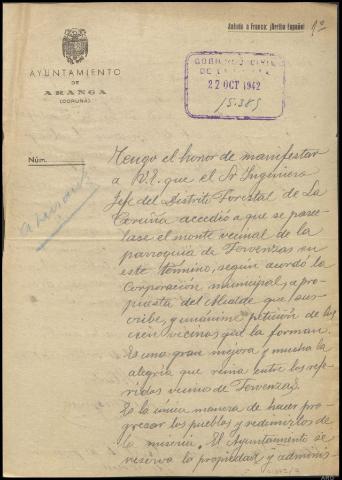 Saludo a Franco: ¡Arriba España!
1º
AYUNTAMIENTO
DE
ARANGA
(CORUÑA)
GOBIERNO CIVIL
22 OCT 1942
15.385
Núm.
Tengo el honor de manifestar
a V.E. que el Sr Ingeniero
Jefe del Distrito Forestal de La
Coruña accedió a que se parce-
lase el monte vecinal de la
parroquia de Fervenzas en
este término, según acordó la
Corporación municipal, a pro-
puesta del Alcalde que sus-
cribe, y unánime petición de los
cien vecinos que la forman.
Es una gran mejora y mucha la
alegria que reina entre los refe-
ridos vecinos de Fervenzas.
Es la única manera de hacer pro-
gresar los pueblos y redimirlos de
la miseria. El Ayuntamiento se
reserva la propiedad y adminis-